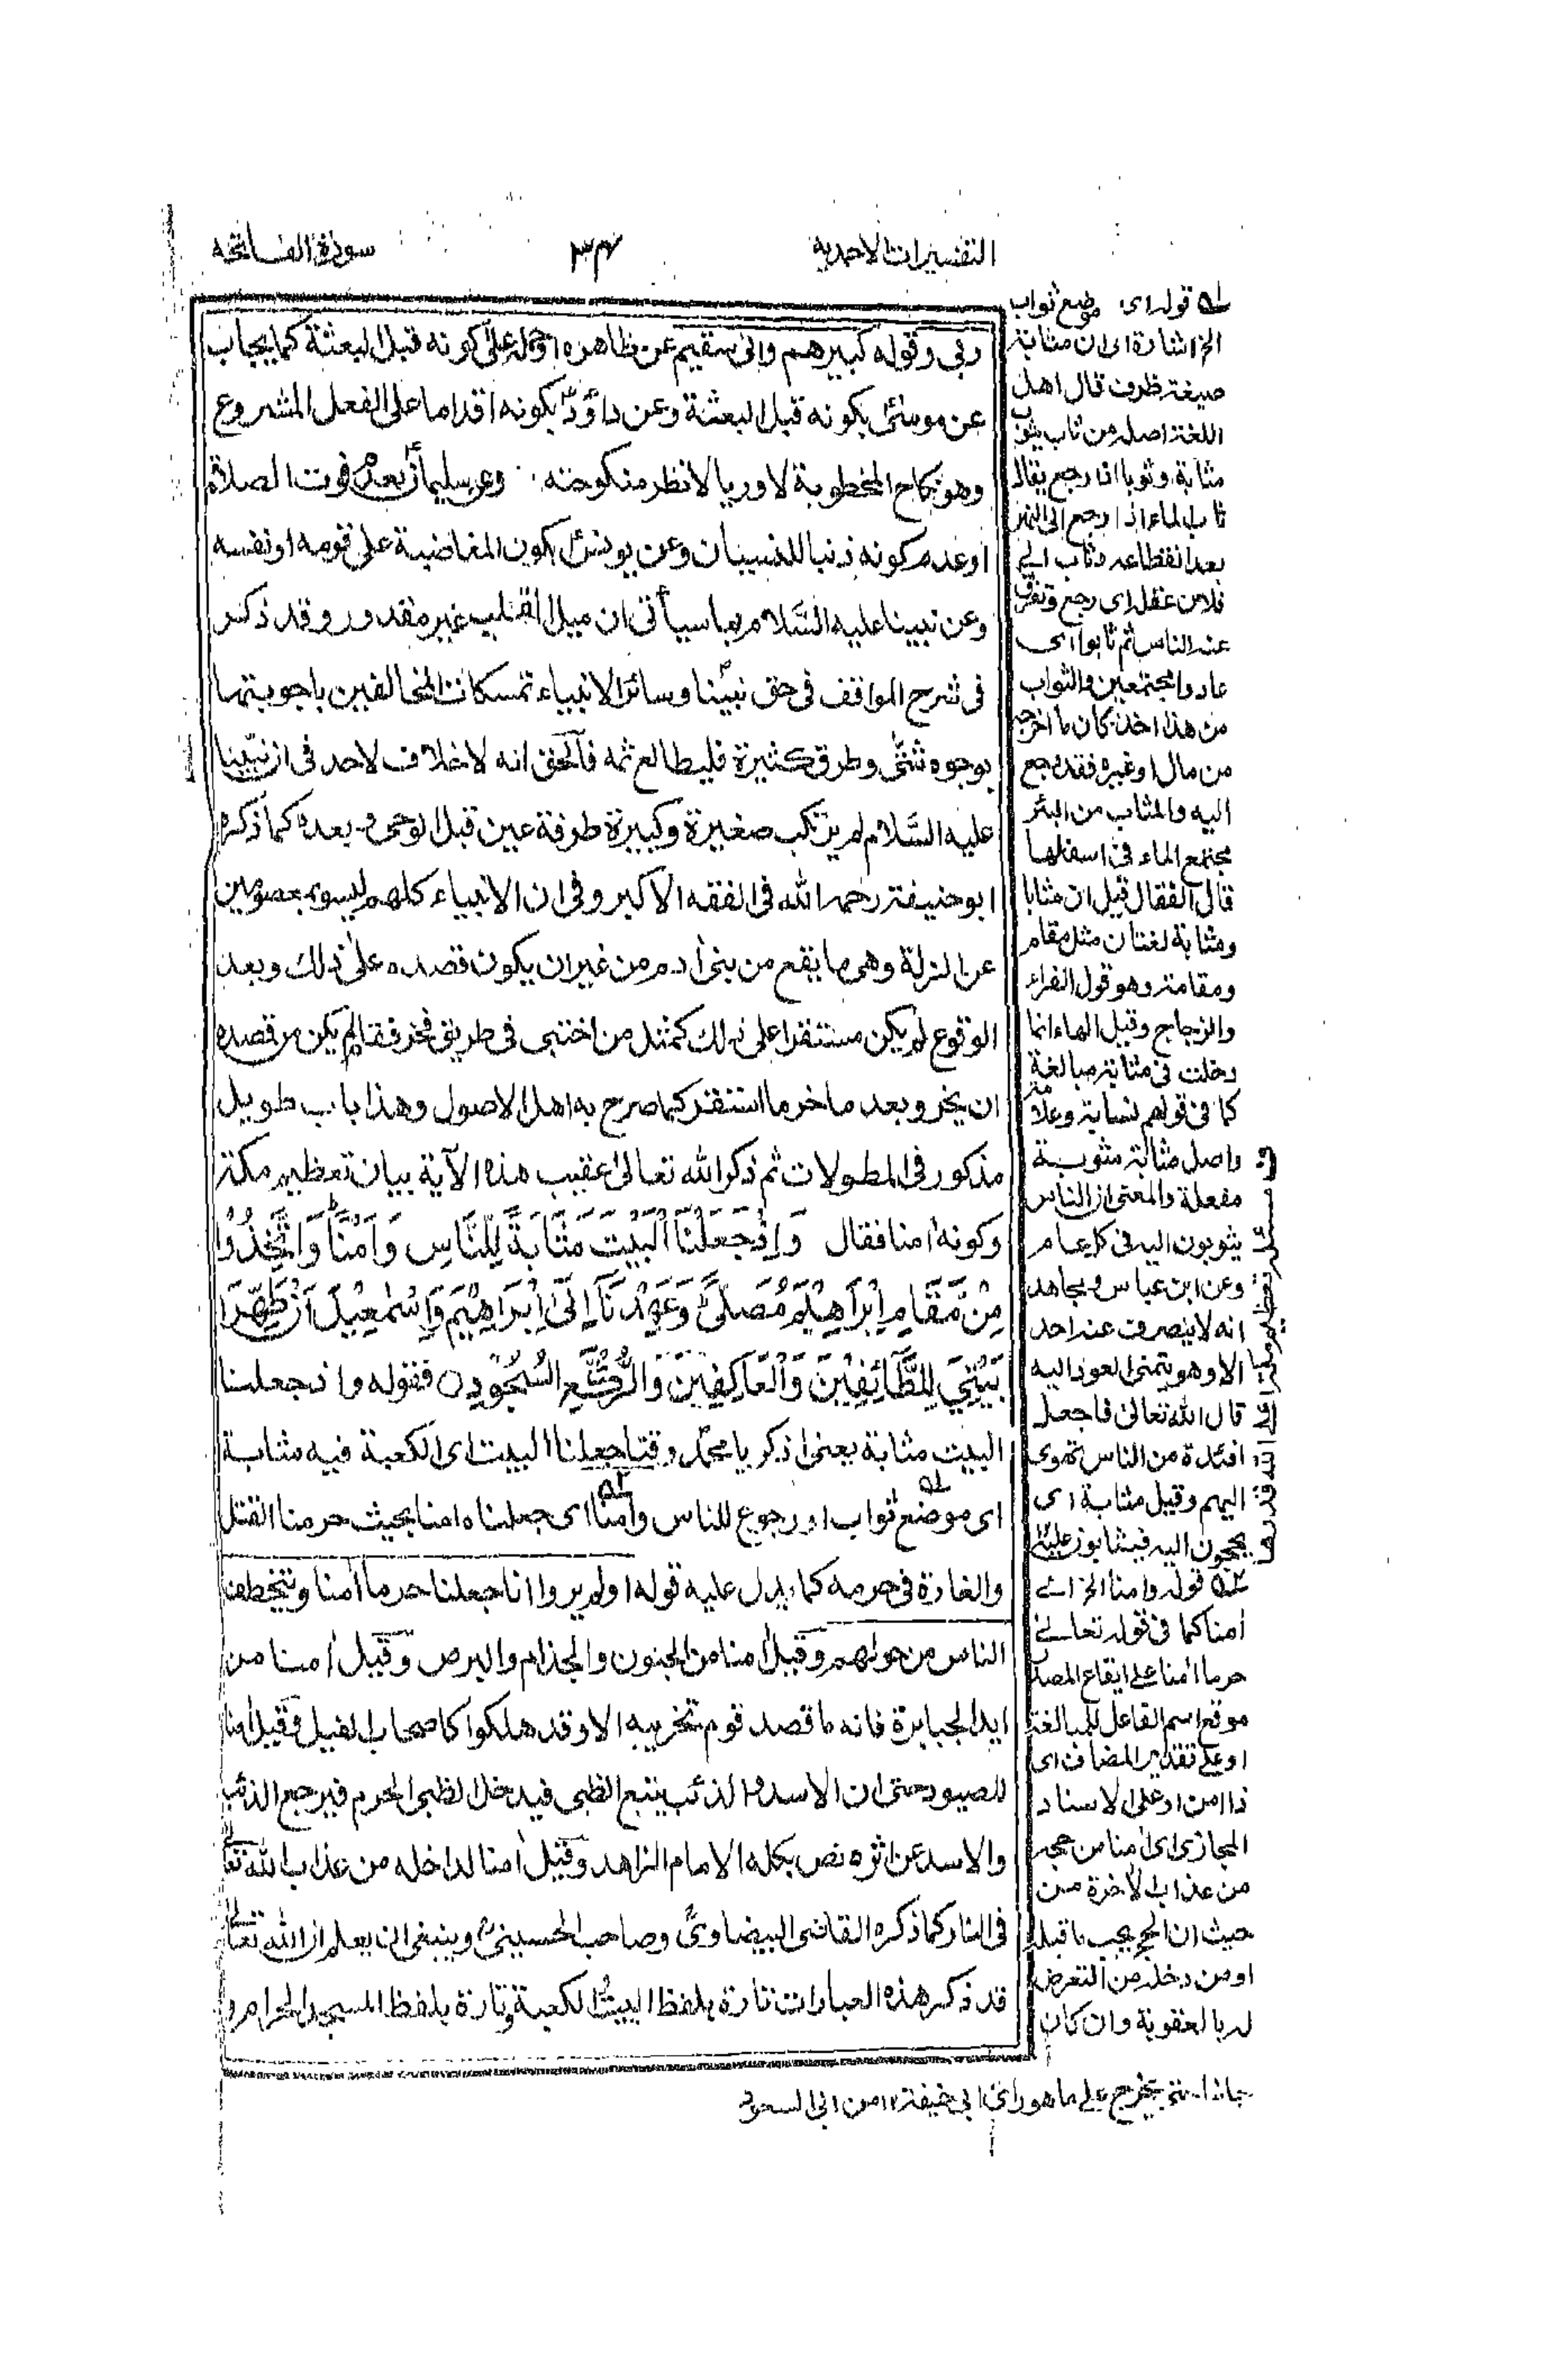 التفسيرات الاحمديه
٣٤
سورة الفاتحه
ربى وقوله كبيرهم وانى سقيم عن ظاهره او حمله على كونه قبل البعثة كما يجاب
عن موسى بكونه قبل البعثة وعن داؤد بكونه اقداما على الفعل المشروع
وهو نكاح المخطوبة لاوريا لا نظر منكوحته وعن سليمان بعد فوت الصلاة
او عدم كونه ذنبا للنسيان وعن يونس بكون المغاضبة على قومه او نفسه
وعن نبينا عليه السلام بما سيأتى ان ميل القلب غير مقدور وقد ذكر
فى شرح المواقف فى حق نبينا وسائر الانبياء تمسكات المخالفين باجوبتها
بوجوه شتى وطرق كثيرة فليطالع ثمه فالحق انه لا خلاف لاحد فى ان نبينا
عليه السلام لم يرتكب صغيرة وكبيرة طرفة عين قبل الوحى وبعده كما ذكره
ابو حنيفة رحمه الله فى الفقه الاكبر وفى ان الانبياء كلهم ليسوا بمعصومين
عن الزلة وهى ما يقع من بنى أدم من غير ان يكون قصده على ذلك وبعد
الوقوع لم يكن مستقرا على ذلك كمثل من اختبى فى طريق فخر فقا لم يكن من قصده
ان يخر وبعد ما خر ما استقر كما صرح به اهل الاصول وهذا باب طويل
مذكور فى المطولات ثم ذكر الله تعالى عقيب هذه الآية بيان تعظيم مكة
وكونه أمنا فقال وَاِذْ جَعَلْنَا الْبَيْتَ مَثَابَةً لِّلنَّاسِ وَاَمْنًا وَاتَّخِذُوْا
مِنْ مَّقَامِ اِبْرَاهِيْمَ مُصَلًّى وَعَهِدْنَا اِلٰى اِبْرَاهِيْمَ وَاِسْمٰعِيْلَ اَنْ طَهِّرَا
بَيْتِيَ لِلطَّآئِفِيْنَ وَالْعَاكِفِيْنَ وَالرُّكَّعِ السُّجُوْدِ ○ فقوله واذ جعلنا
البيت مثابة بمعنى اذكر يا محمد وقتا جعلنا البيت اى الكعبة فيه مثابة
اى موضع ثواب او رجوع للناس وامنا اى جعلناه امنا بحيث حرمنا القتل
والغارة فى حرمه كما يدل عليه قوله اولم يروا انا جعلنا حرما أمنا ويتخطف
الناس من حولهم وقيل أمنا من الجنون والجذام والبرص وقيل أمنا من
ايد الجبابرة فانه ما قصد قوم تخريبه الا وقد هلكوا كاصحاب الفيل وقيل أمنا
للصيود حتى ان الاسد والذئب يتبع الظبى فيدخل الظبى الحرم فيرجع الذئب
والاسد عن اثره نص بكله الامام الزاهد وقيل أمنا لداخله من عذاب الله تعالى
فى النار كما ذكره القاضى البيضاوى وصاحب الحسينى وينبغى ان يعلم ان الله تعالى
قد ذكر هذه العبارات تارة بلفظ البيت والكعبة وتارة بلفظ المسجد الحرام و
١ه قوله اى موضع ثواب
الخ اشارة الى ان مثابة
صيغة ظرف قال اهل
اللغة اصله من ثاب يثوب
مثابة وثوبا اذا رجع يقال
ثاب الماء اذا رجع الى النهر
بعد انقطاعه وثاب الى
فلان عقله اى رجع وتفرق
عنه الناس ثم ثابوا اى
عادوا مجتمعين والثواب
من هذا اخذ كان ما اخرجه
من مال او غيره فقد رجع
اليه والمثاب من البئر
مجتمع الماء فى اسفلها
قال القفال قيل ان مثابا
ومثابة لغتان مثل مقام
ومقامة وهو قول الفراء
والزجاج وقيل الهاء انما
دخلت فى مثابة مبالغة
كما فى قولهم نسابة وعلامة
واصل مثابة مثوبة
مفعلة والمعنى ان الناس
يثوبون اليه فى كل عام
وعن ابن عباس ومجاهد
انه لا ينصرف عنه احد
الا وهو يتمنى العود اليه
قال الله تعالى فاجعل
افئدة من الناس تهوى
اليهم وقيل مثابة اى
يحجون اليه فيثابون عليه
٢ه قوله وامنا الخ اى
أمنا كما فى قوله تعالى
حرما أمنا على ايقاع المصدر
موقع اسم الفاعل للمبالغة
او على تقدير المضاف اى
ذا امن او على الاسناد
المجازى اى أمنا من حجه
من عذاب الأخرة من
حيث ان الحج يجب ما قبله
او من دخله من التعرض
له بالعقوبة وان كان
جانيا حتى يخرج على ما هو راى ابى حنيفة ١٢ من ابى السعود